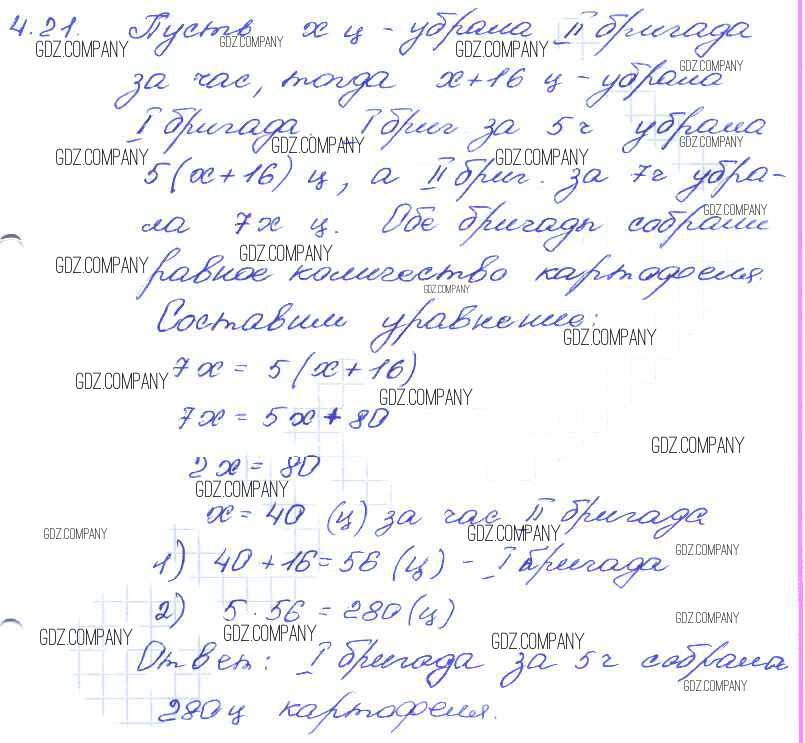 4.21. Пусть x ц - убрала II бригада
GDZ.COMPANY GDZ.COMPANY GDZ.COMPANY GDZ.COMPANY
за час, тогда x+16 ц - убрала
I бригада. I бриг за 5 ч убрала
GDZ.COMPANY GDZ.COMPANY GDZ.COMPANY GDZ.COMPANY
5(x+16) ц, а II бриг. за 7ч убра-
ла 7x ц. Обе бригады собрали
GDZ.COMPANY GDZ.COMPANY GDZ.COMPANY
равное количество картофеля.
GDZ.COMPANY
Составим уравнение:
GDZ.COMPANY
7x = 5(x+16)
GDZ.COMPANY GDZ.COMPANY
7x = 5x + 80
GDZ.COMPANY
2x = 80
GDZ.COMPANY
x = 40 (ц) за час II бригада
GDZ.COMPANY GDZ.COMPANY
1) 40+16=56 (ц) - I бригада
GDZ.COMPANY
2) 5·56 = 280 (ц)
GDZ.COMPANY GDZ.COMPANY GDZ.COMPANY GDZ.COMPANY
Ответ: I бригада за 5ч собрала
GDZ.COMPANY
280ц картофеля.